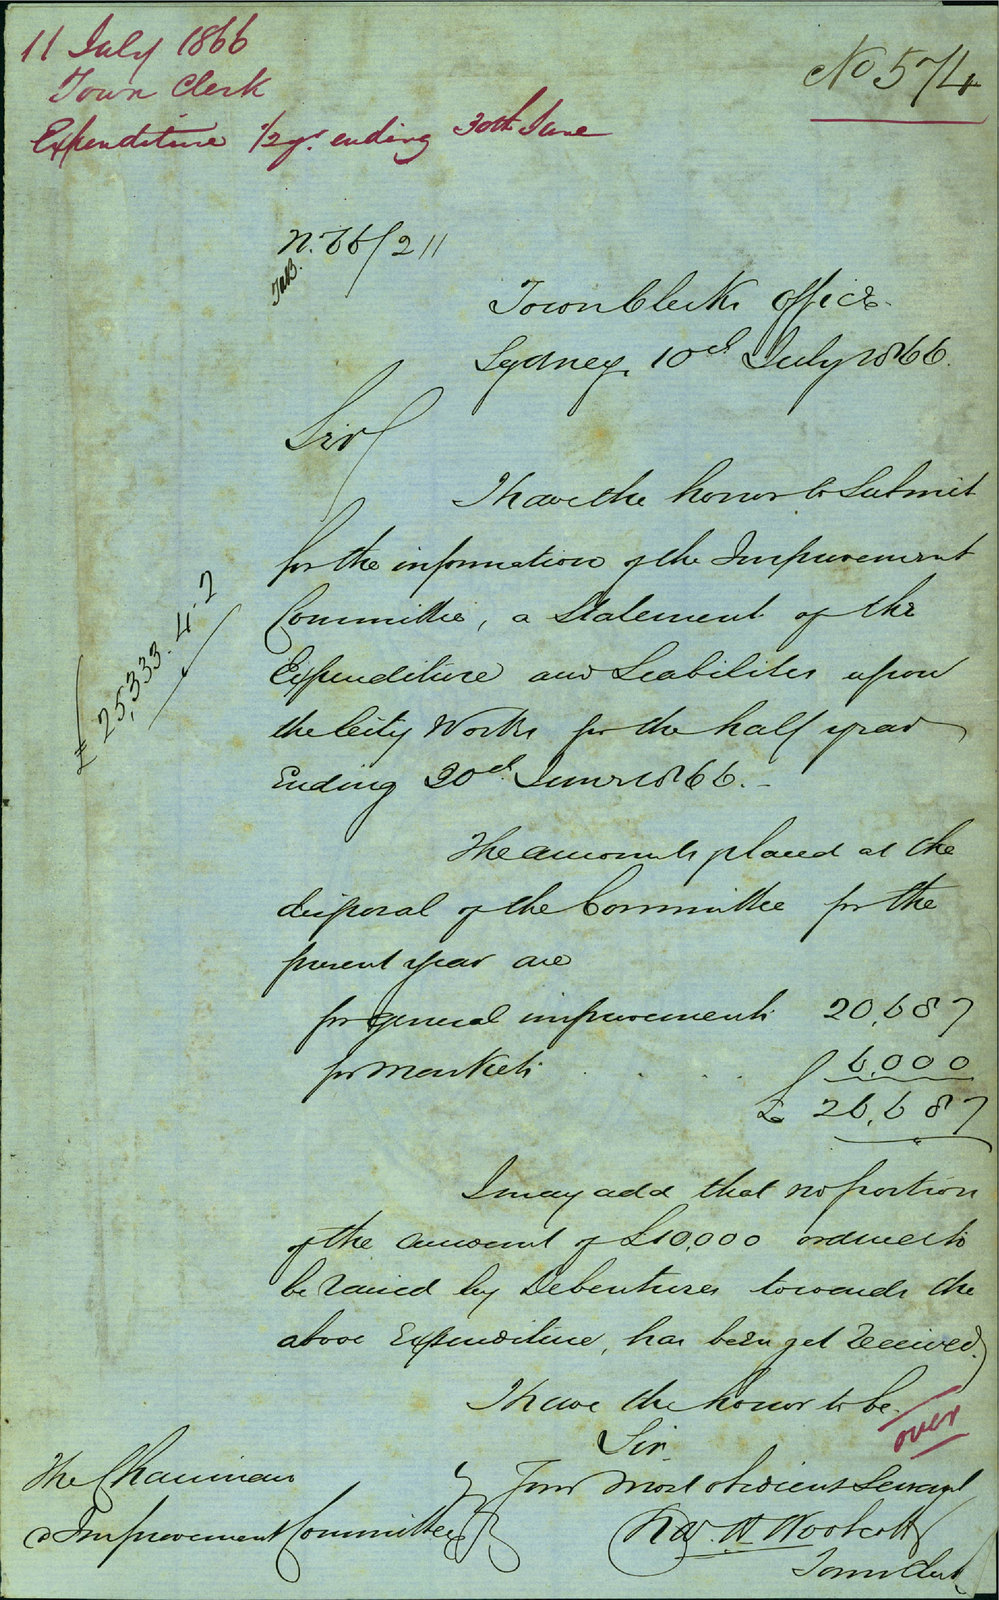 11 July 1866
Town Clerk
Expenditure 1/2 yr. ending 30th June
No 574
N. 66/211
Town Clerks Office
Sydney, 10th July 1866.
Sir
I have the honor to Submit
for the information of the Improvement
Committee, a Statement of the
Expenditure and Liabilites upon
the City Works for the half year
Ending 30th June 1866. -
£25,333. 4. 2
The amounts placed at the
disposal of the Committee for the
present year are
for general improvements 20,687
for Markets . . . . 6,000
£ 26,687
I may add that no portion
of the amount of £10,000 ordered to
be raised by Debentures towards the
above Expenditure, has been yet received.
I have the honor to be.
over
Sir
Your Most obedient Servant
Woolcott
Town Clerk
The Chairman
Improvement Committee